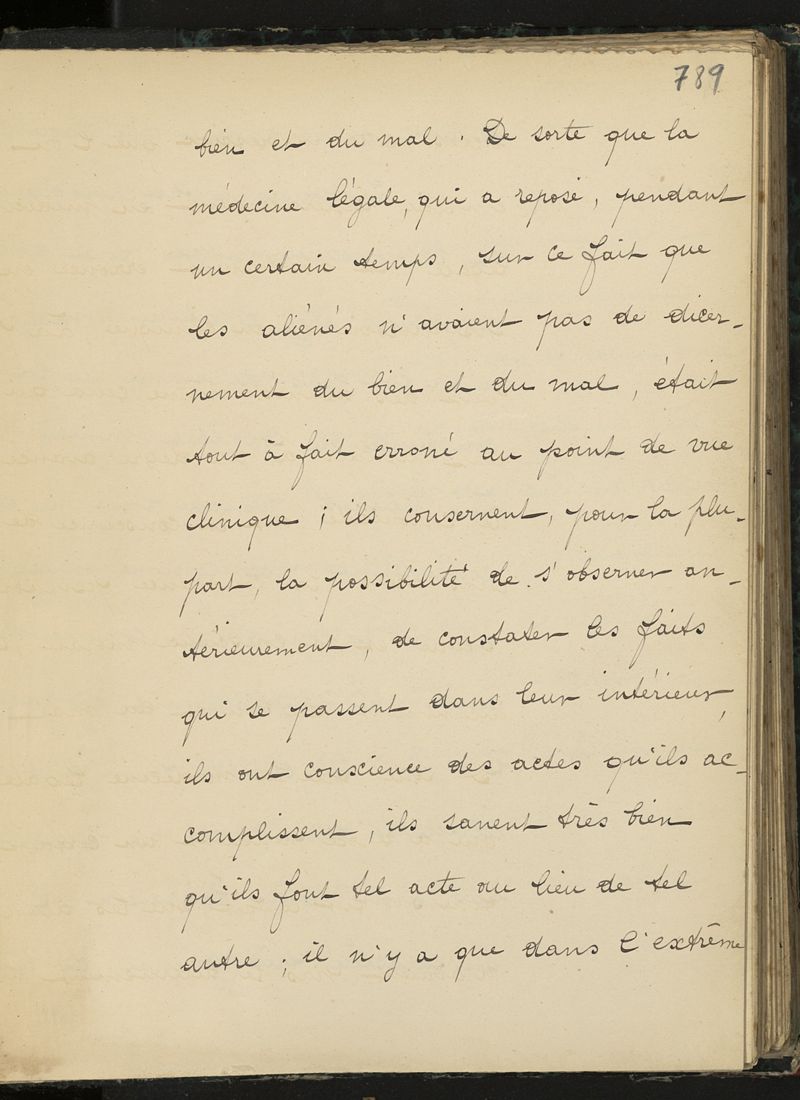 789
bien et du mal. De sorte que la
médecine légale, qui a reposé, pendant
un certain temps, sur ce fait que
les aliénés n'avaient pas de dicer-
nement du bien et du mal, était
tout à fait erroné au point de vue
clinique ; ils conservent, pour la plu-
part, la possibilité de s'observer an-
térieurement, de constater les faits
qui se passent dans leur intérieur,
ils ont conscience des actes qu'ils ac-
complissent, ils savent très bien
qu'ils font tel acte au lieu de tel
autre ; il n'y a que dans l'extrême